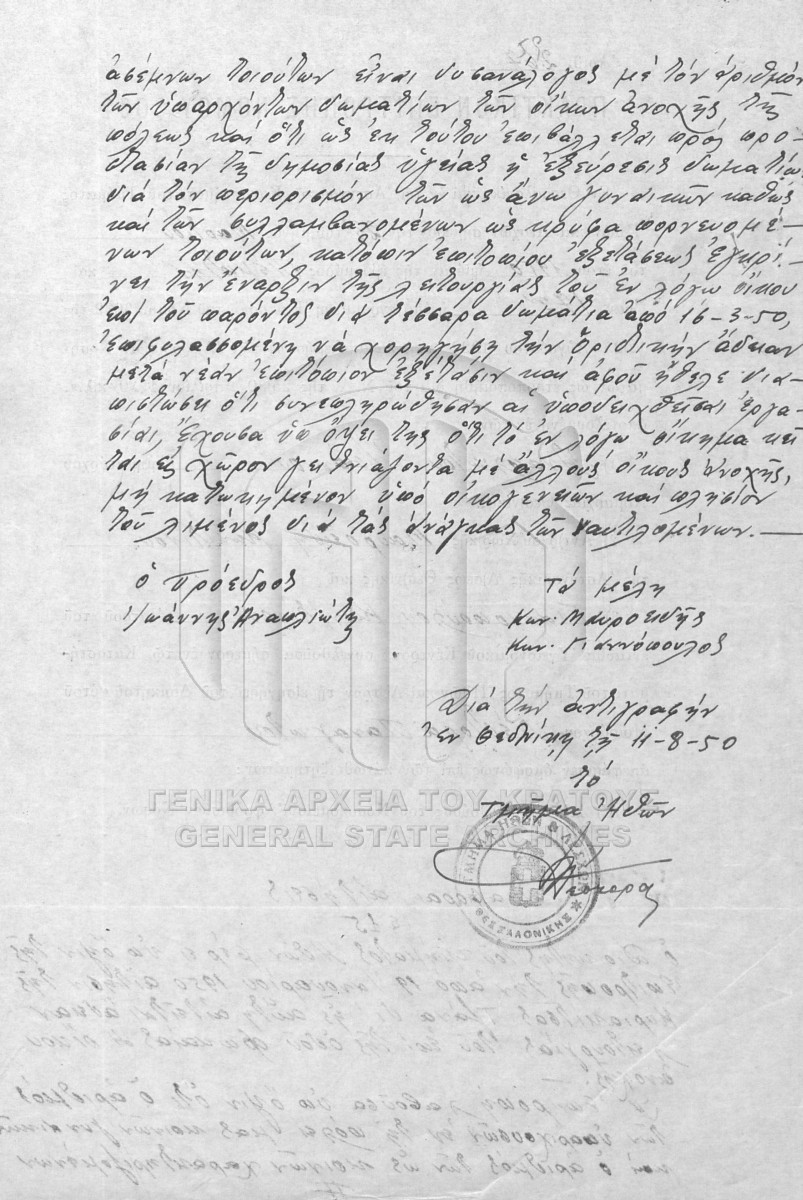 ἀσέμνων τοιούτων εἶναι δυσανάλογος μὲ τὸν ἀριθμὸν
τῶν ὑπαρχόντων δωματίων τῶν οἴκων ἀνοχῆς τῆς
πόλεως καὶ ὅτι ὡς ἐκ τούτου ἐπιβάλλεται πρὸς προ-
στασίαν τῆς δημοσίας ὑγείας ἡ ἐξεύρεσις δωματίων
διὰ τὸν περιορισμὸν τῶν ὡς ἄνω γυναικῶν καθὼς
καὶ τῶν συλλαμβανομένων ὡς κρύφα πορνευομέ-
νων τοιούτων, κατόπιν ἐπιτοπίου ἐξετάσεως ἐγκρί-
νει τὴν ἔναρξιν τῆς λειτουργίας τοῦ ἐν λόγω οἴκου
ἐπὶ τοῦ παρόντος διὰ τέσσαρα δωμάτια ἀπὸ 16-3-50,
ἐπιφυλασσομένη νὰ χορηγήση τὴν ὁριστικὴν ἄδειαν
μετὰ νέαν ἐπιτόπιον ἐξέτασιν καὶ ἀφοῦ ἤθελε δια-
πιστώσει ὅτι συνεπληρώθησαν αἱ ὑποδειχθεῖσαι ἐργα-
σίαι, ἔχουσα ὑπ' ὄψει της ὅτι τὸ ἐν λόγω οἴκημα κεῖ
ται εἰς χῶρον γειτνιάζοντα μὲ ἄλλους οἴκους ἀνοχῆς,
μὴ κατωκημένον ὑπὸ οἰκογενειῶν καὶ πλησίον
τοῦ λιμένος διὰ τὰς ἀνάγκας τῶν ναυτιλομένων.—
ὁ Πρόεδρος
Ἰωάννης Ἀναπλιώτης
Τὰ μέλη
Κων. Μαυροειδῆς
Κων. Γιαννόπουλος
Διὰ τὴν ἀντιγραφὴν
Ἐν Θεσ/νίκῃ τῇ 11-8-50
τὸ
Τμῆμα Ἠθῶν
ΤΜΗΜΑ ΗΘΩΝ
ΘΕΣΣΑΛΟΝΙΚΗΣ
ΓΕΝΙΚΑ ΑΡΧΕΙΑ ΤΟΥ ΚΡΑΤΟΥΣ
GENERAL STATE ARCHIVES